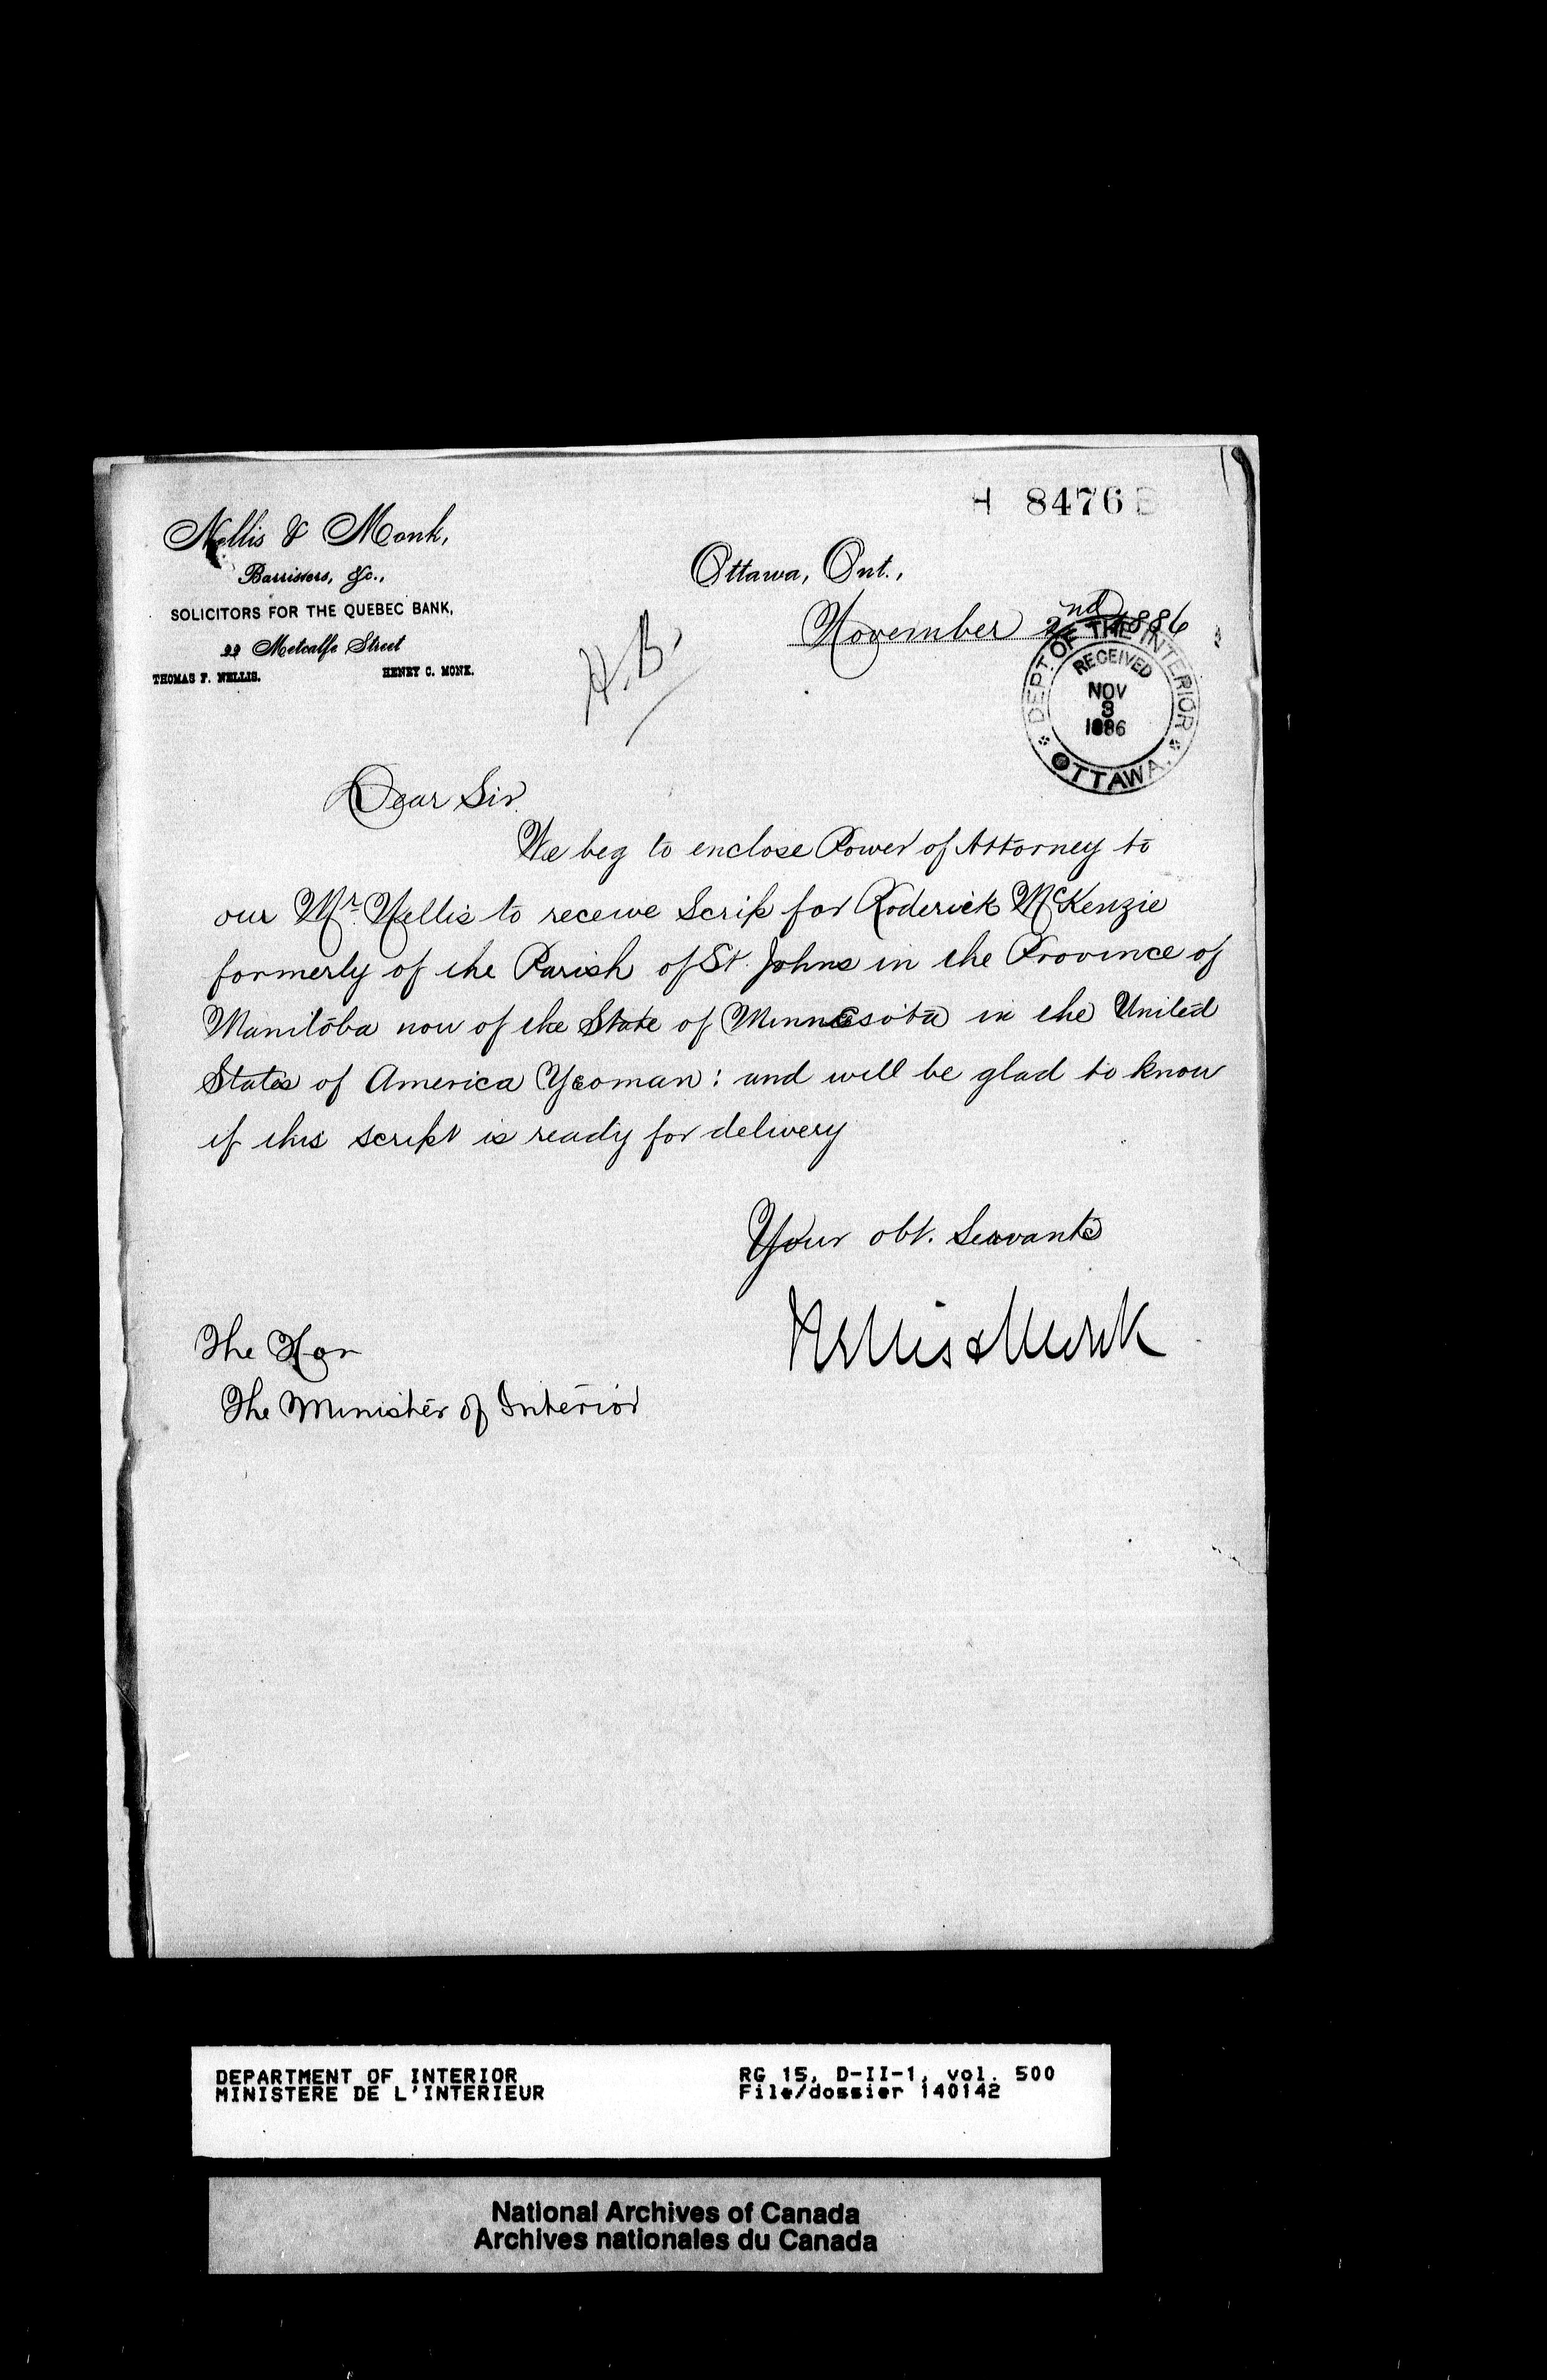 H 8476
Nellis & Monk,
Barristers, &c.,
SOLICITORS FOR THE QUEBEC BANK,
22 Metcalfe Street
THOMAS F. NELLIS. HENRY C. MONK.
Ottawa, Ont.,
November 2nd 1886
H.B.
DEPT. OF THE INTERIOR
RECEIVED
NOV
3
1886
OTTAWA.
Dear Sir
We beg to enclose Power of Attorney to
our Mr. Nellis to receive Scrip for Roderick McKenzie
formerly of the Parish of St. Johns in the Province of
Manitoba now of the State of Minnesota in the United
States of America Yeoman: and will be glad to know
if this script is ready for delivery
Your obt. Servants
Nellis & Monk
The Hon
The Minister of Interior
DEPARTMENT OF INTERIOR RG 15, D-II-1, vol. 500
MINISTERE DE L'INTERIEUR File/dossier 140142
National Archives of Canada
Archives nationales du Canada